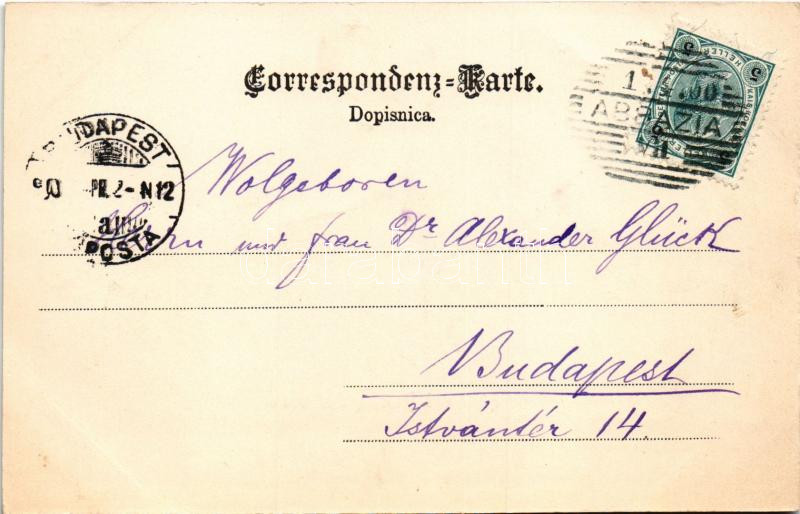 Correspondenz=Karte.
Dopisnica.
5 HELLER 5
1. .00
ABBAZIA
BUDAPEST
2-N12
POSTA
Wolgeboren
Herrn und frau Dr Alexander Glück
Budapest
Istvántér 14